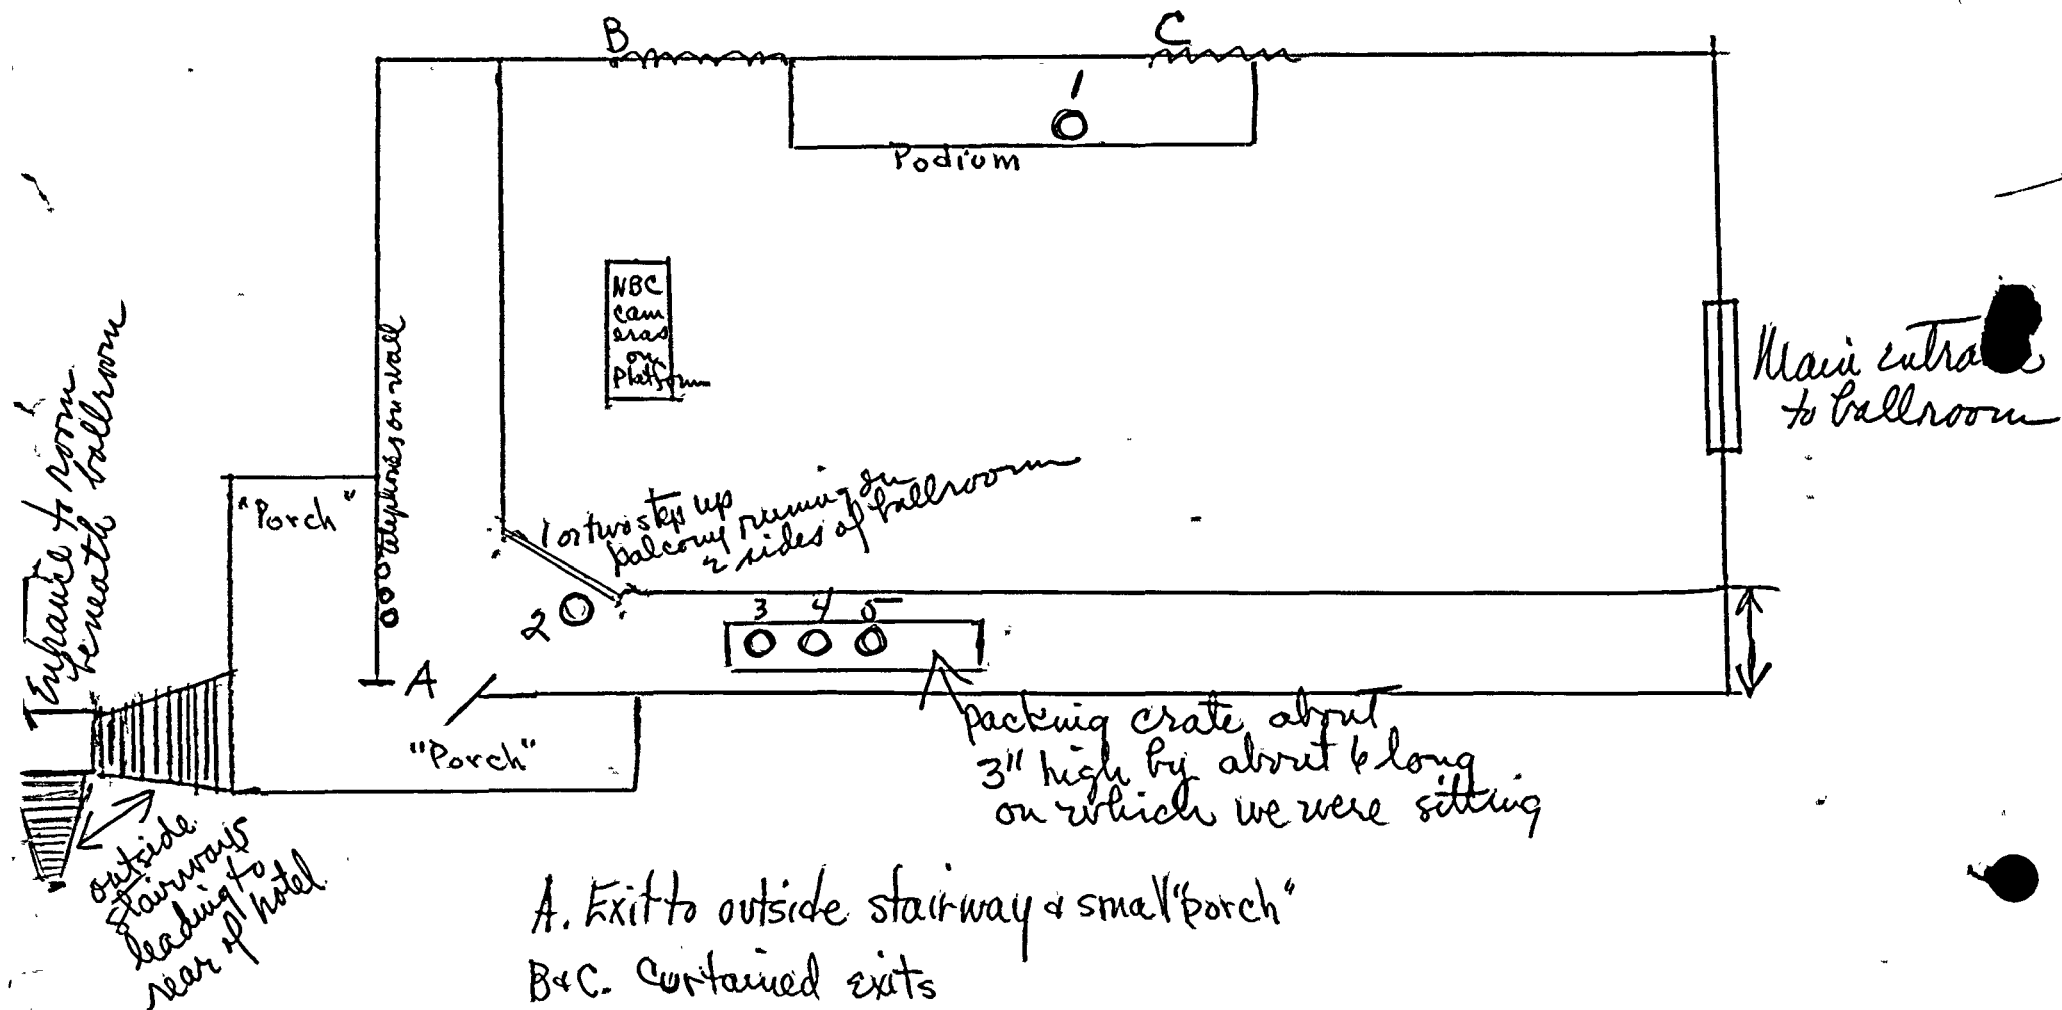 B
C
1
Podium
NBC
cam
eras
on
Platform
telephones on wall
Main entra
to ballroom
Entrance to room
beneath ballroom
"Porch"
1 or two steps up
balcony running on
2 sides of ballroom
2
3 4 5
A
"Porch"
packing crate about
3" high by about 6 long
on which we were sitting
outside
stairways
leading to
rear of hotel
A. Exit to outside stairway & small "porch"
B&C. Curtained exits